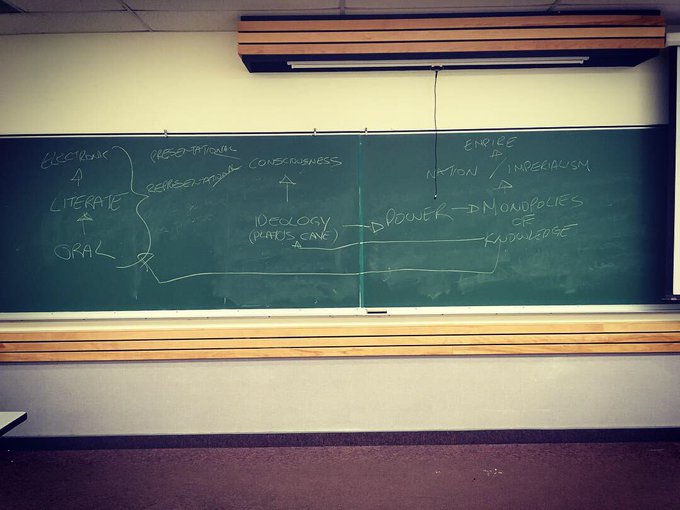 ELECTRONIC
LITERATE
ORAL
PRESENTATIONAL
REPRESENTATIONAL
CONSCIOUSNESS
IDEOLOGY
(PLATO'S CAVE)
POWER
EMPIRE
NATION / IMPERIALISM
MONOPOLIES
OF
KNOWLEDGE